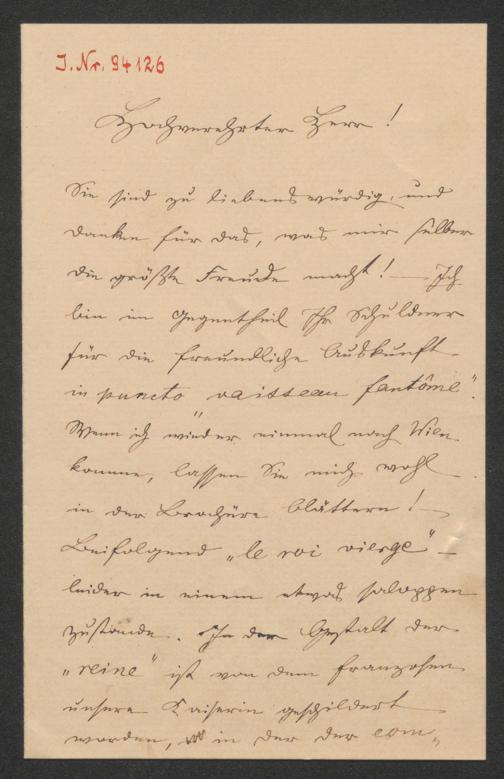 I.Nr. 94126
Hochverehrter Herr!
Sie sind zu liebenswürdig, und
danken für das, was mir selber
die größte Freude macht! — Ich
bin im Gegentheil Ihr Schuldner
für die freundliche Auskunft
in puncto „vaisseau fantôme".
Wenn ich wieder einmal nach Wien
komme, lassen Sie mich wohl
in der Brochüre blättern! —
Beifolgend „le roi vierge" —
leider in einem etwas saloppen
Zustande. In der Gestalt der
„reine" ist von dem Franzosen
unsere Kaiserin geschildert
worden, in der der com-